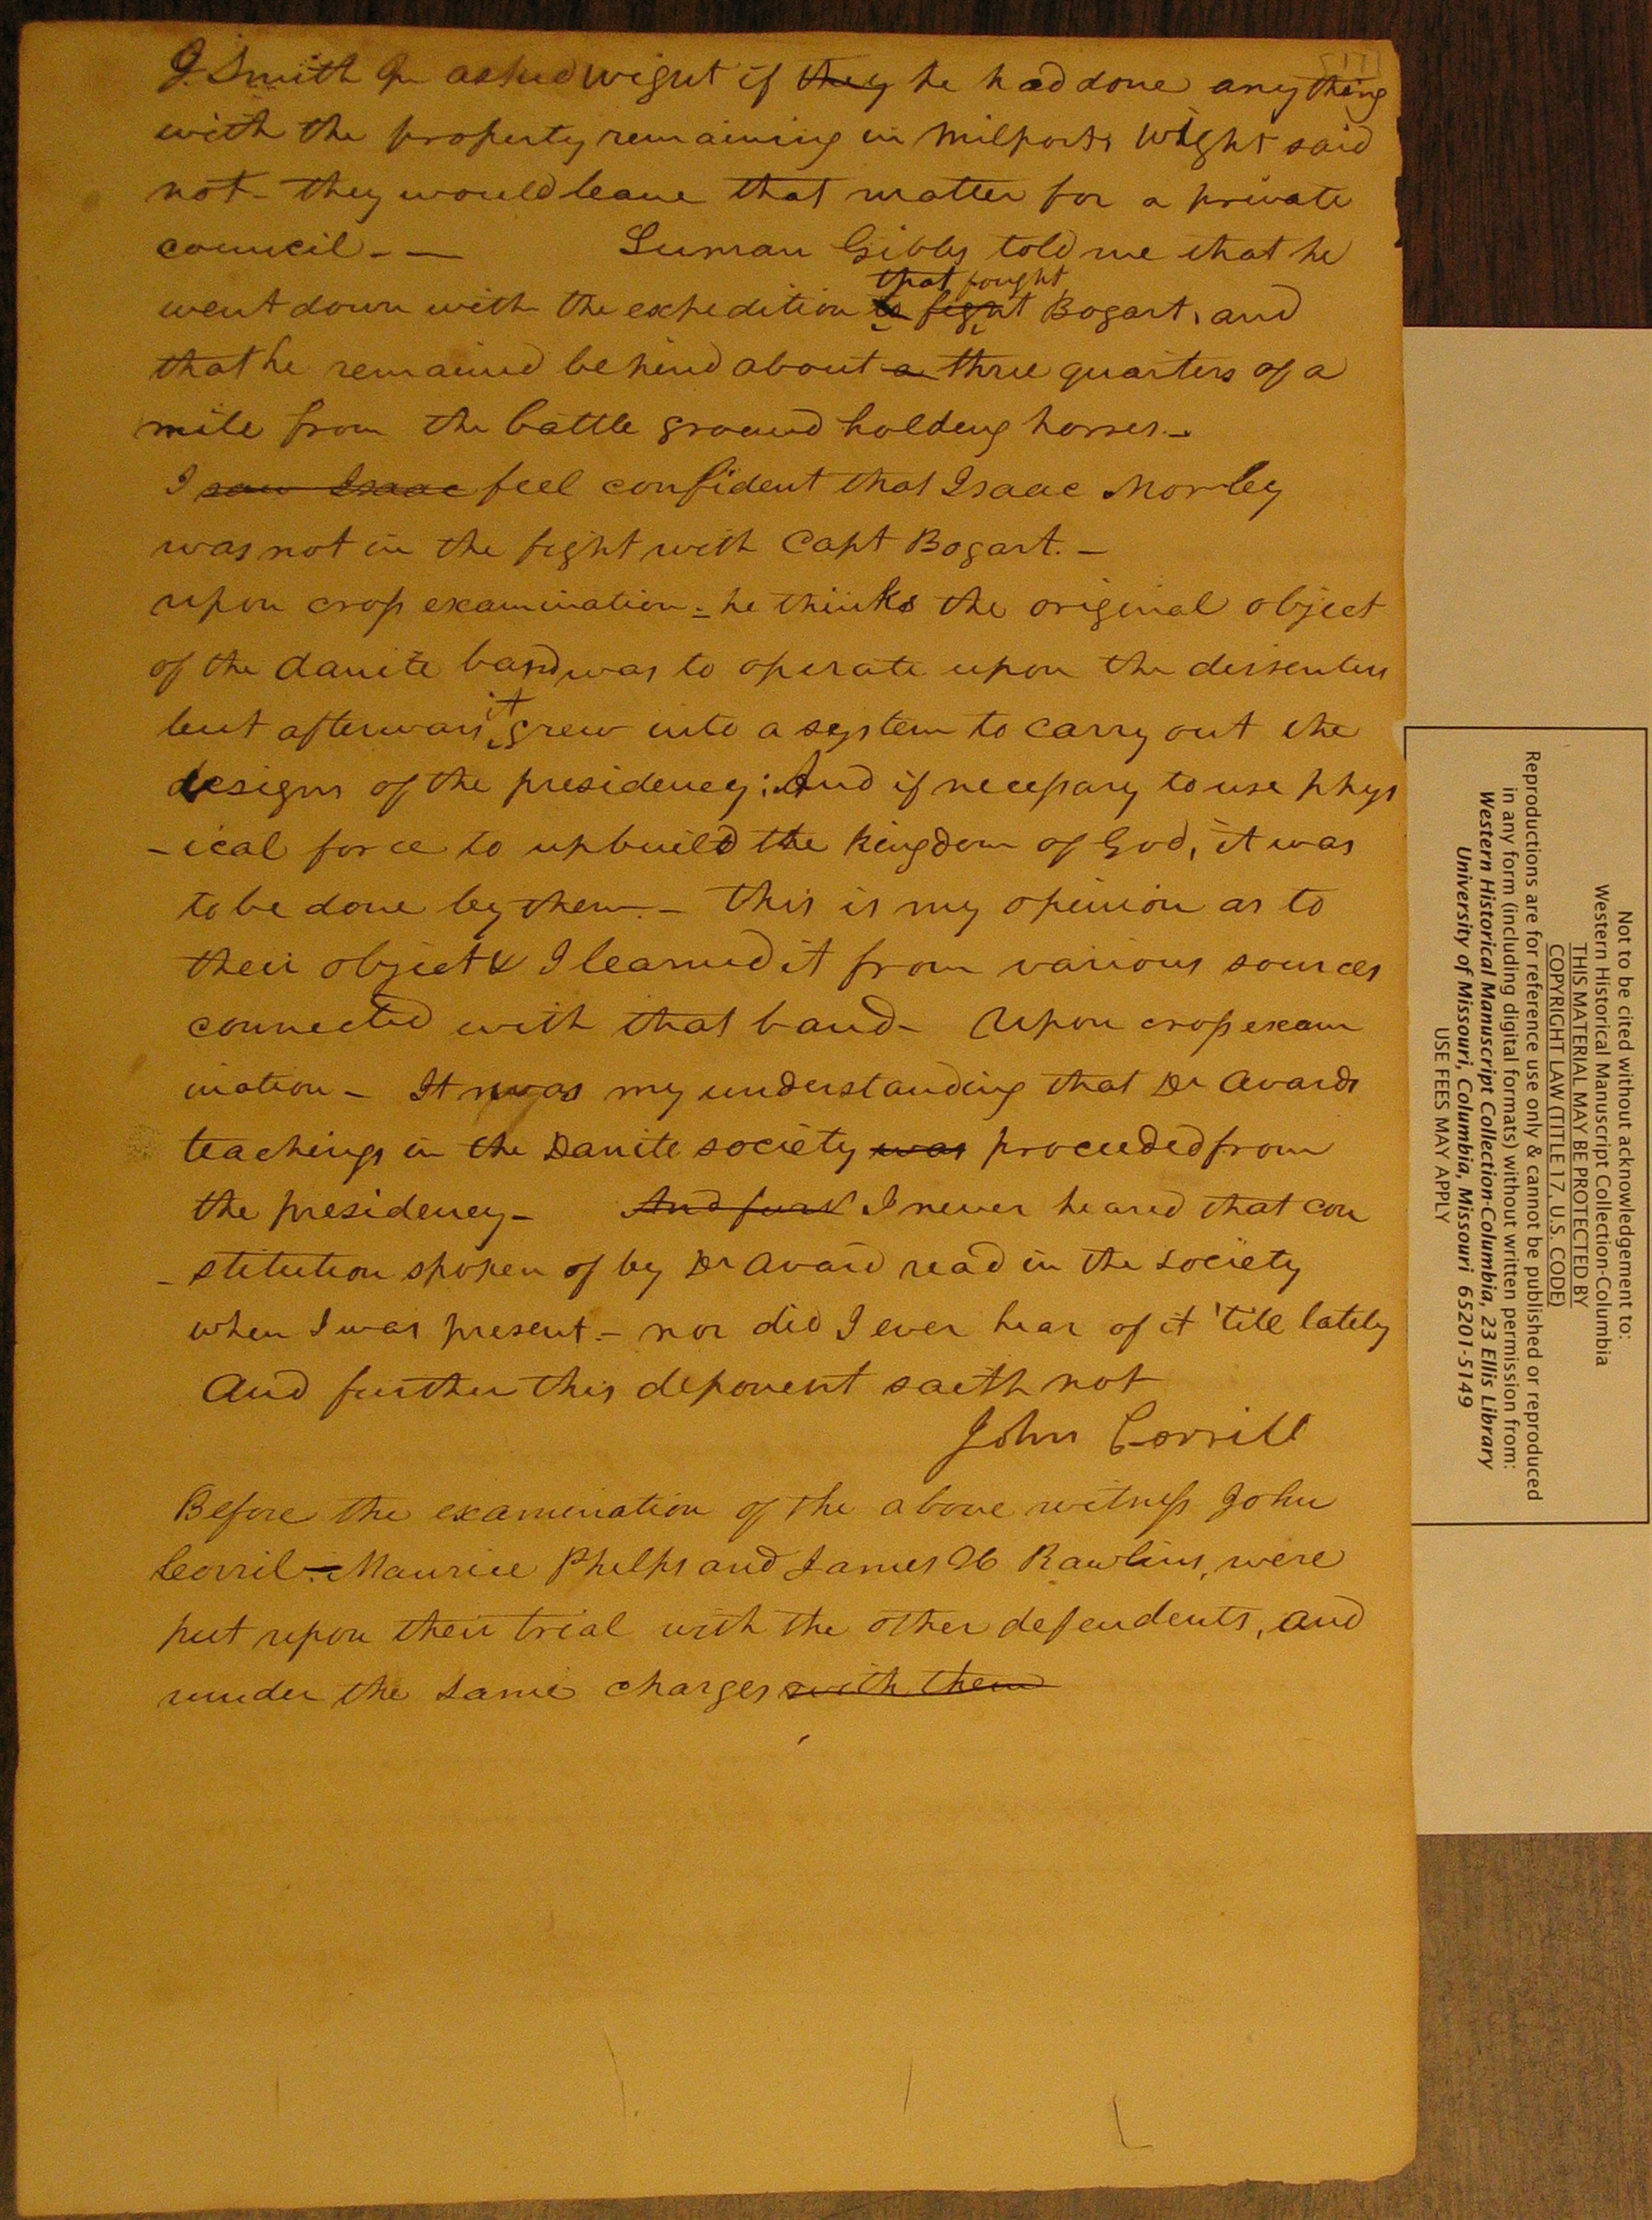 [17]
J. Smith Jr asked Wight if they he had done anything
with the property remaining in Milport; Wight said
not - they would leave that matter for a private
council - — Luman Gibbs told me that he
that fought
went down with the expedition to fight Bogart, and
that he remained behind about a three quarters of a
mile from the battle ground holding horses. -
I saw Isaac feel confident that Isaac Morley
was not in the fight with Capt Bogart. -
upon cross examination - he thinks the original object
of the danite band was to operate upon the dissenters
it
but afterwars grew into a system to carry out the
designs of the presidency; And if necessary to use phys
-ical force to upbuild the Kingdom of God, it was
to be done by them. - This is my opinion as to
their object & I learned it from various sources
connected with that band - Upon cross exam
ination - It was my understanding that Dr Avards
teachings in the Danite society was proceeded from
the presidency - And furt I never heared that con
- stitution spoken of by Dr Avard read in the Society
when I was present. - nor did I ever hear of it 'till lately
And further this deponent saith not
John Corrill
Before the examination of the above witness John
Corril - Maurice Phelps and James H Rawlins, were
put upon their trial with the other defendents, and
under the same charges with them
Not to be cited without acknowledgement to:
Western Historical Manuscript Collection-Columbia
THIS MATERIAL MAY BE PROTECTED BY
COPYRIGHT LAW (TITLE 17, U.S. CODE)
Reproductions are for reference use only & cannot be published or reproduced
in any form (including digital formats) without written permission from:
Western Historical Manuscript Collection-Columbia, 23 Ellis Library
University of Missouri, Columbia, Missouri 65201-5149
USE FEES MAY APPLY